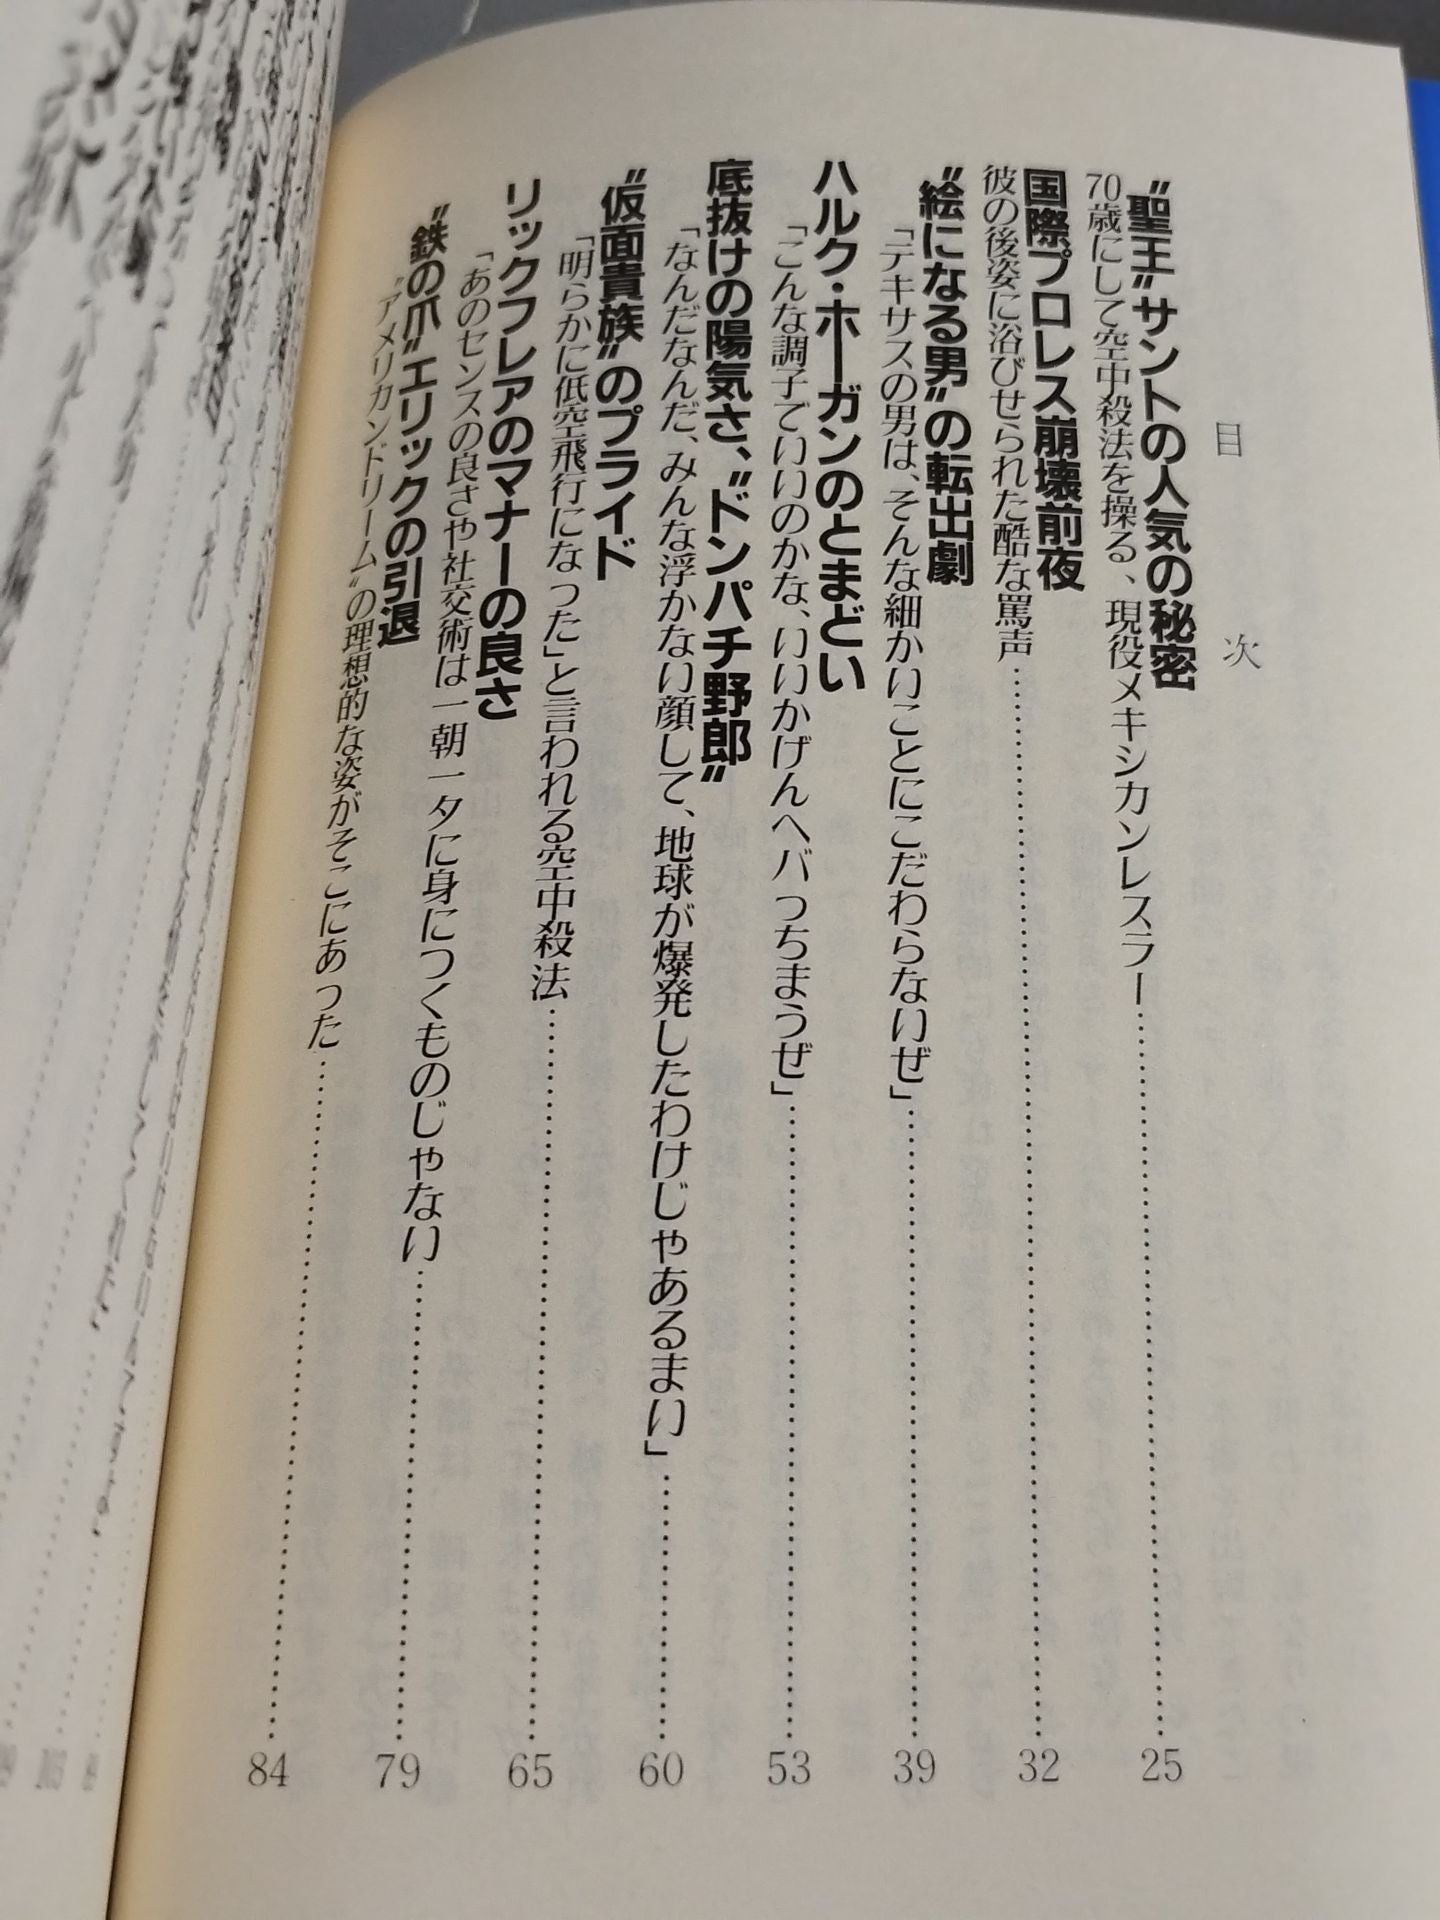 目次
〝聖王〟サントの人気の秘密
70歳にして空中殺法を操る、現役メキシカンレスラー……25
国際プロレス崩壊前夜
彼の後姿に浴びせられた酷な罵声……32
〝絵になる男〟の転出劇
「テキサスの男は、そんな細かいことにこだわらないぜ」……39
ハルク・ホーガンのとまどい
「こんな調子でいいのかな、いいかげんヘバっちまうぜ」……53
底抜けの陽気さ、〝ドンパチ野郎〟
「なんだなんだ、みんな浮かない顔して、地球が爆発したわけじゃあるまい」……60
〝仮面貴族〟のプライド
「明らかに低空飛行になった」と言われる空中殺法……65
リックフレアのマナーの良さ
「あのセンスの良さや社交術は一朝一夕に身につくものじゃない……79
〝鉄の爪〟エリックの引退
〝アメリカンドリーム〟の理想的な姿がそこにあった……84